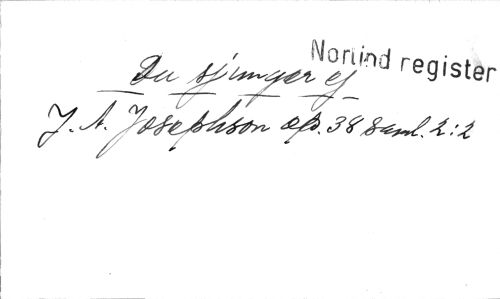 Norlind register
Du sjunger ej
J. A. Josephson op. 38 Saml. 2:2